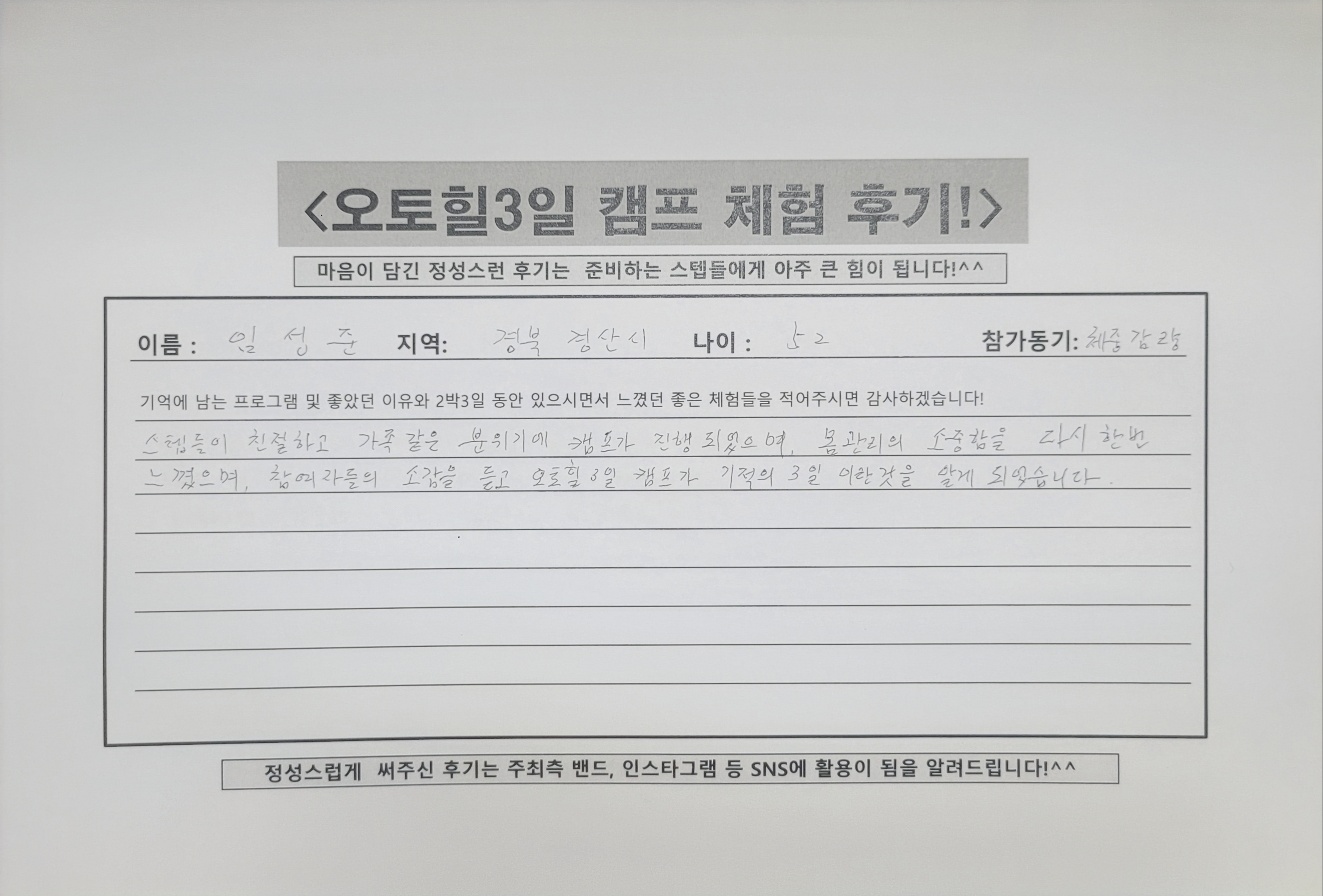 <오토힐3일 캠프 체험 후기!>
마음이 담긴 정성스런 후기는 준비하는 스텝들에게 아주 큰 힘이 됩니다!^^
이름 : 임성준 지역: 경북 경산시 나이 : 52 참가동기: 체중감량
기억에 남는 프로그램 및 좋았던 이유와 2박3일 동안 있으시면서 느꼈던 좋은 체험들을 적어주시면 감사하겠습니다!
스텝들이 친절하고 가족같은 분위기에 캠프가 진행되었으며, 몸관리의 소중함을 다시 한번
느꼈으며, 참여자들의 소감을 듣고 오토힐3일 캠프가 기적의 3일 이란것을 알게 되었습니다.
정성스럽게 써주신 후기는 주최측 밴드, 인스타그램 등 SNS에 활용이 됨을 알려드립니다!^^